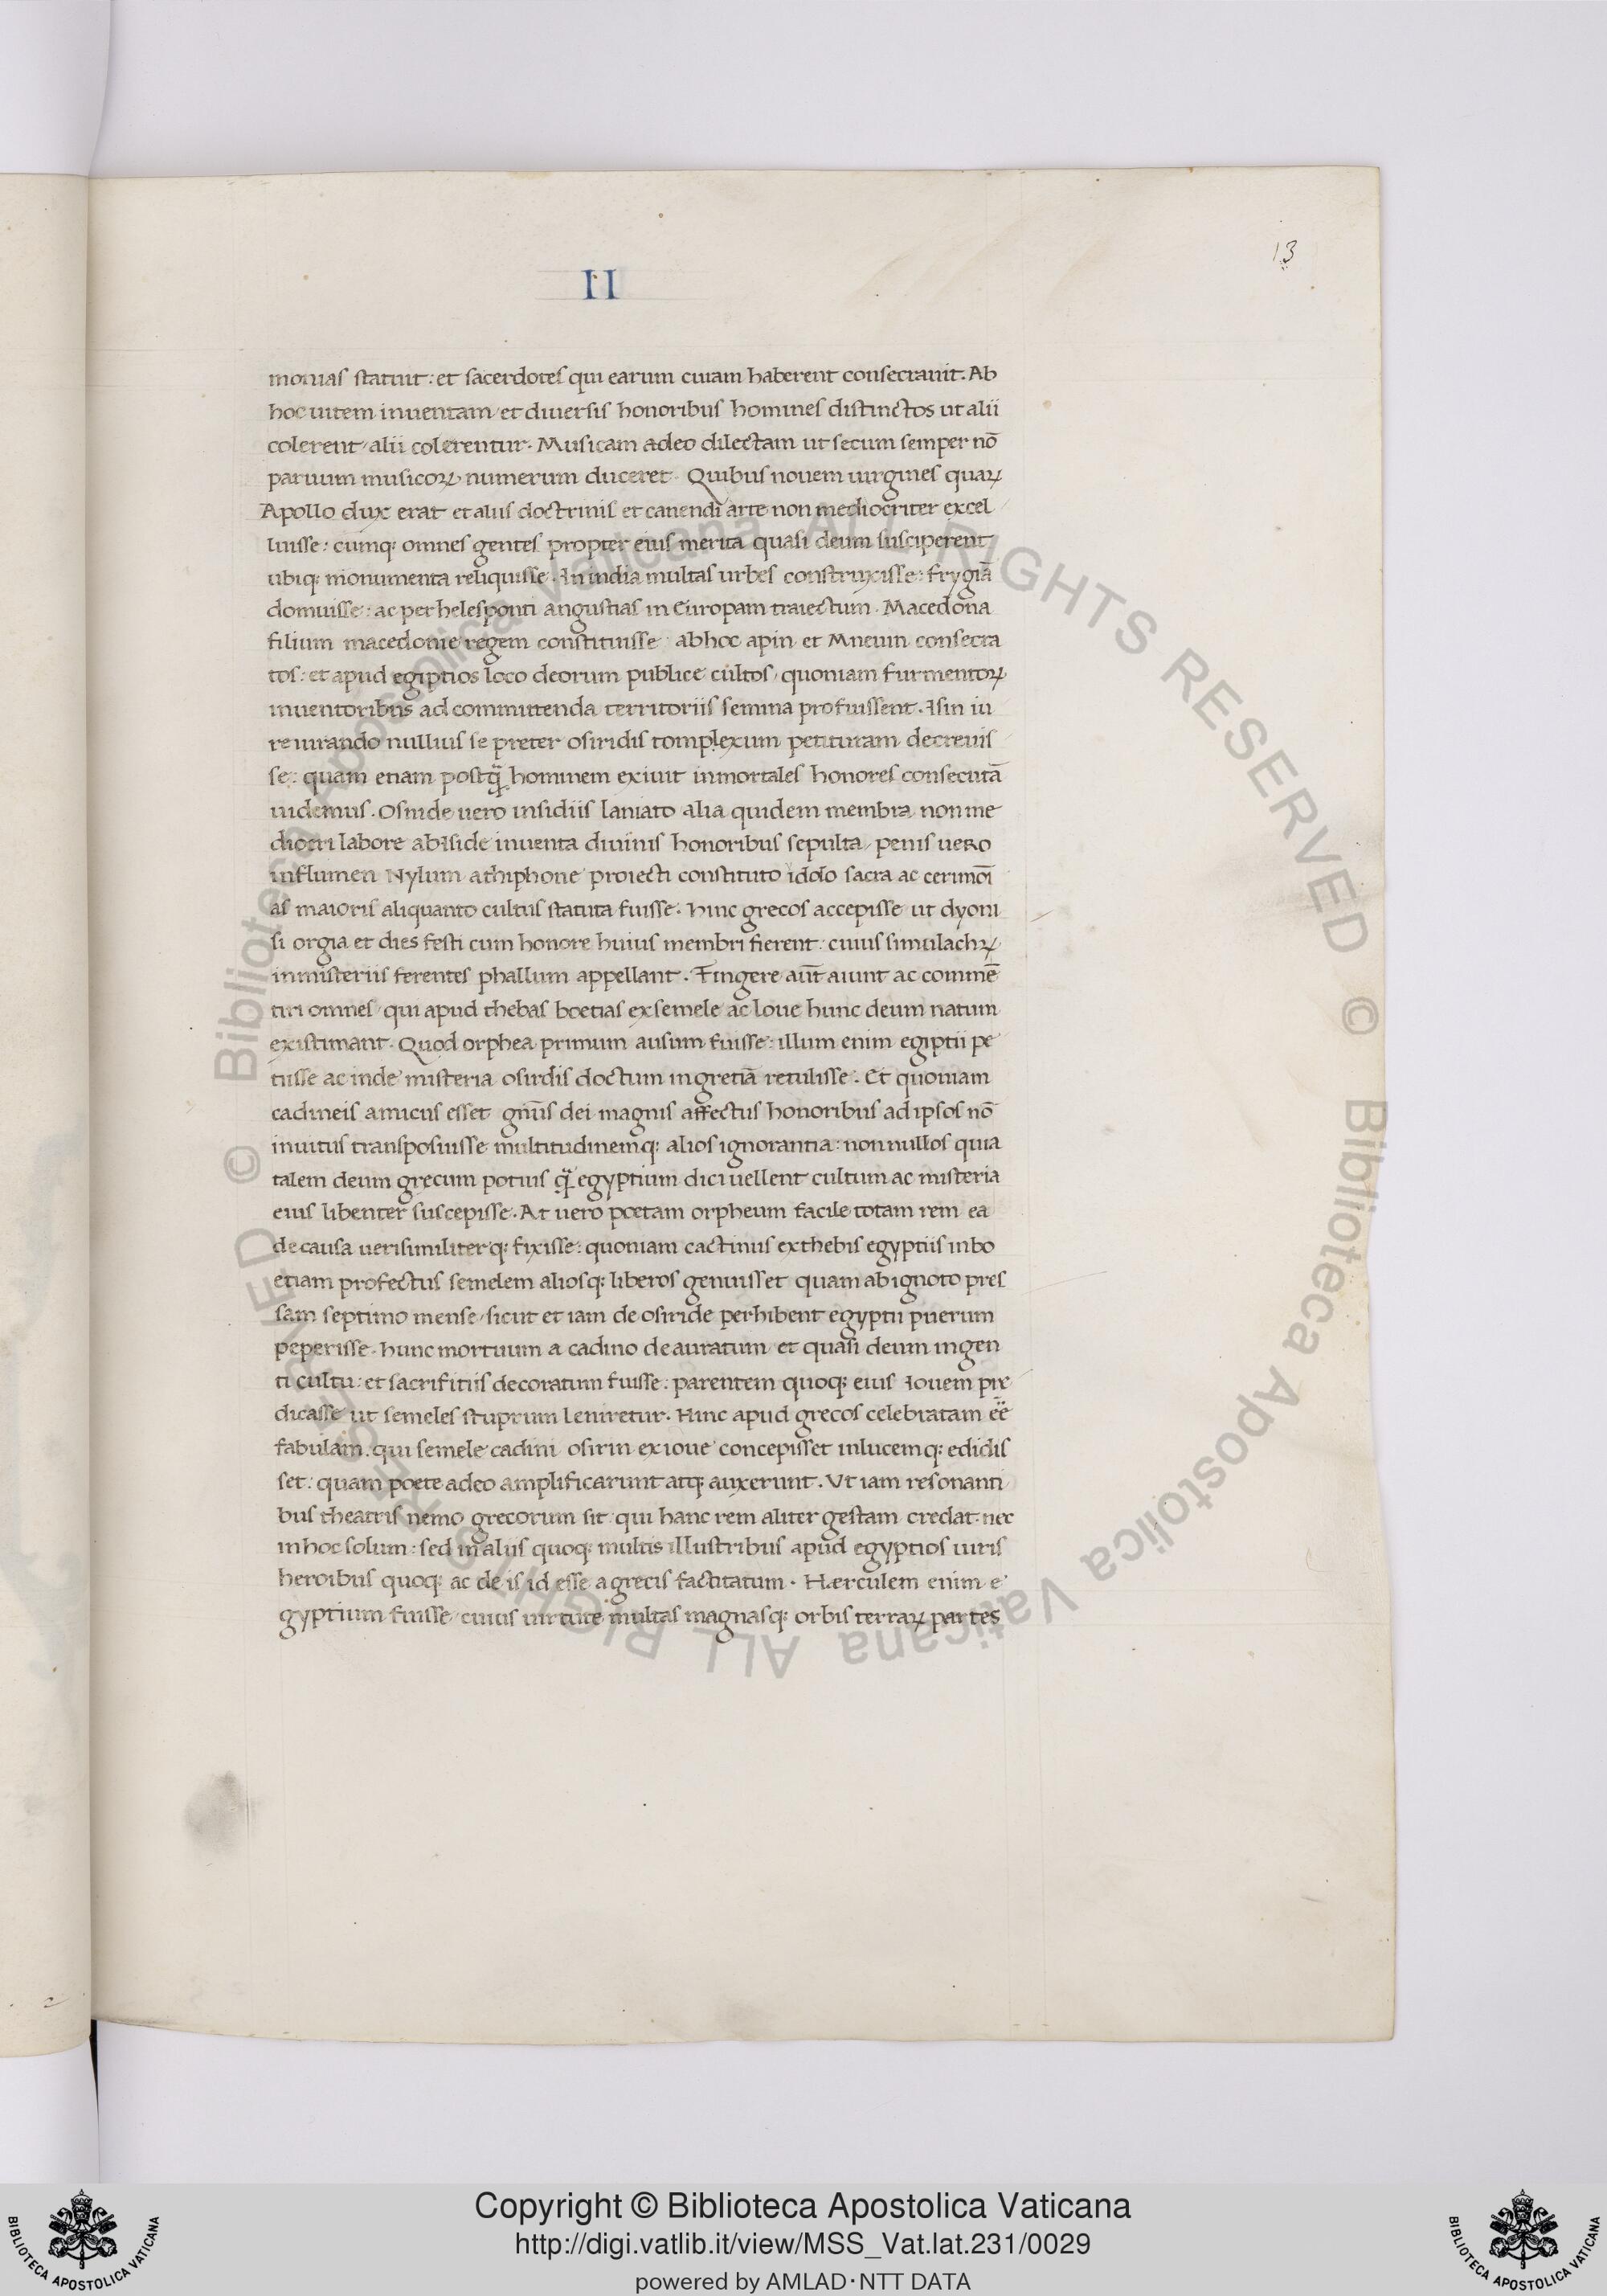 13
II
monias statuit: et sacerdotes qui earum curam haberent consecrauit. Ab
hoc uitem inuentam et diuersis honoribus homines distinctos ut alii
colerent alii colerentur. Musicam adeo dilectam ut secum semper nō
paruum musicoꝝ numerum duceret. Quibus nouem uirgines quaꝝ
Apollo dux erat et aliis doctrinis et canendi arte non mediocriter excel
luisse: cumq; omnes gentes propter eius merita quasi deum susciperent
ubiq; monumenta reliquisse. In india multas urbes construxisse: frygiā
domuisse: ac per helesponti angustias in Europam traiectum. Macedona
filium macedonie regem constituisse ab hoc apin et Mneuin consecra
tos: et apud egiptios loco deorum publice cultos, quoniam furmentoꝝ
inuentoribus ad committenda territoriis semina profuissent. Isin iu
re iurando nullius se preter osiridis complexum petituram decreuis
se: quam etiam postq̄ hominem exiuit inmortales honores consecutā
uidemus. Osiride uero insidiis laniato alia quidem membra non me
diocri labore ab Iside inuenta diuinis honoribus sepulta, penis uero
in flumen Nylum athiphone proiecti constituto idolo sacra ac cerimōi
as maioris aliquanto cultus statuta fuisse. Hinc grecos accepisse ut dyoni
si orgia et dies festi cum honore huius membri fierent: cuius simulachꝝ
in misteriis ferentes phallum appellant. Fingere aūt aiunt ac commē
tiri omnes qui apud thebas boetias ex semele ac Ioue hunc deum natum
existimant. Quod orphea primum ausum fuisse: illum enim egiptii pe
tiisse ac inde misteria osirdis doctum in gretiā retulisse. Et quoniam
cadmeis amicus esset gn̄us dei magnis affectus honoribus ad ipsos nō
inuitus transposuisse multitudinemq; alios ignorantia: non nullos quia
talem deum grecum potius q̄ egyptium dici uellent cultum ac misteria
eius libenter suscepisse. At uero poetam orpheum facile totam rem ea
de causa uerisimiliterq; fixisse: quoniam cactinus ex thebis egyptiis in bo
etiam profectus semelem aliosq; liberos genuisset quam ab ignoto pres
sam septimo mense sicut et iam de osiride perhibent egyptii puerum
peperisse. hunc mortuum a cadino deauratum et quasi deum ingen
ti cultu: et sacrifitiis decoratum fuisse: parentem quoq; eius Iouem pre
dicasse ut semeles stuprum leniretur. Hinc apud grecos celebratam eē
fabulam. qui semele cadmi osirin ex ioue concepisset in lucemq; edidis
set: quam poete adeo amplificarunt atq; auxerunt. Vt iam resonanti
bus theatris nemo grecorum sit qui hanc rem aliter gestam credat: nec
in hoc solum: sed in aliis quoq; multis illustribus apud egyptios uiris
heroibus quoq; ac de is id esse a grecis factitatum. Herculem enim e
gyptium fuisse cuius uirtute multas magnasq; orbis terraꝝ partes
© Biblioteca Apostolica Vaticana ALL RIGHTS RESERVED © Biblioteca Apostolica Vaticana ALL RIGHTS RESERVED
Copyright © Biblioteca Apostolica Vaticana
http://digi.vatlib.it/view/MSS_Vat.lat.231/0029
powered by AMLAD·NTT DATA
BIBLIOTECA APOSTOLICA VATICANA
BIBLIOTECA APOSTOLICA VATICANA